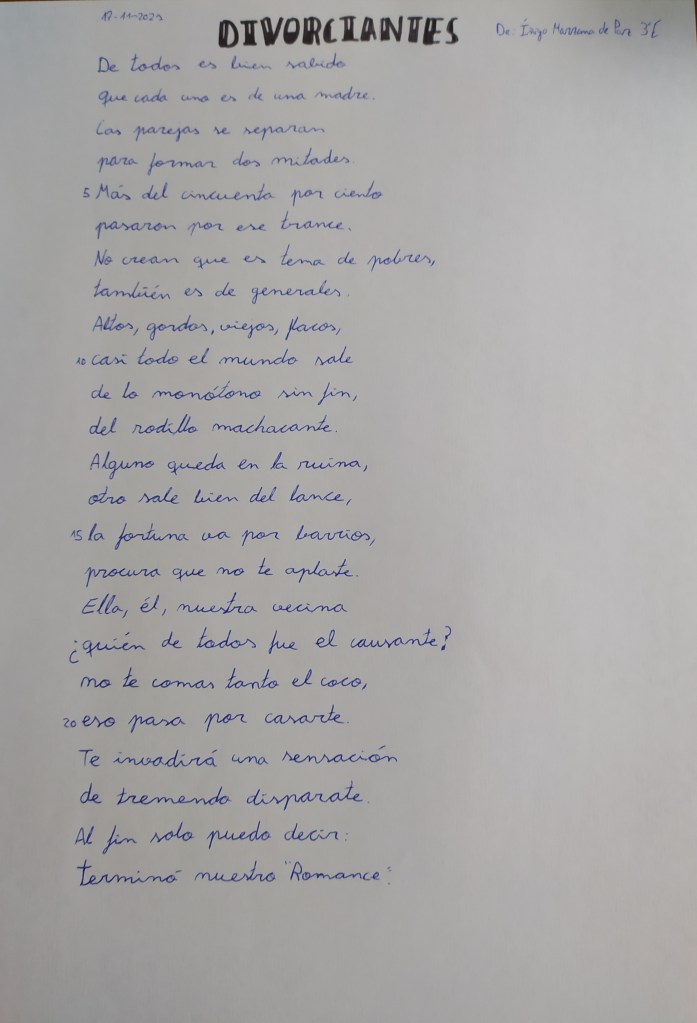 17-11-2023
DIVORCIANTES
De: Íñigo de Paz 3ºE
De todos es bien sabido
que cada uno es de una madre.
Las parejas se separan
para formar dos mitades.
5 Más del cincuenta por ciento
pasaron por ese trance.
No crean que es tema de pobres,
también es de generales.
Altos, gordos, viejos, flacos,
10 casi todo el mundo sale
de lo monótono sin fin,
del rodillo machacante.
Alguno queda en la ruina,
otro sale bien del lance,
15 la fortuna va por barrios,
procura que no te aplaste.
Ella, él, nuestra vecina
¿quién de todos fue el causante?
no te comas tanto el coco,
20 eso pasa por casarte.
Te invadirá una sensación
de tremendo disparate.
Al fin solo puedo decir:
terminó nuestro "Romance".